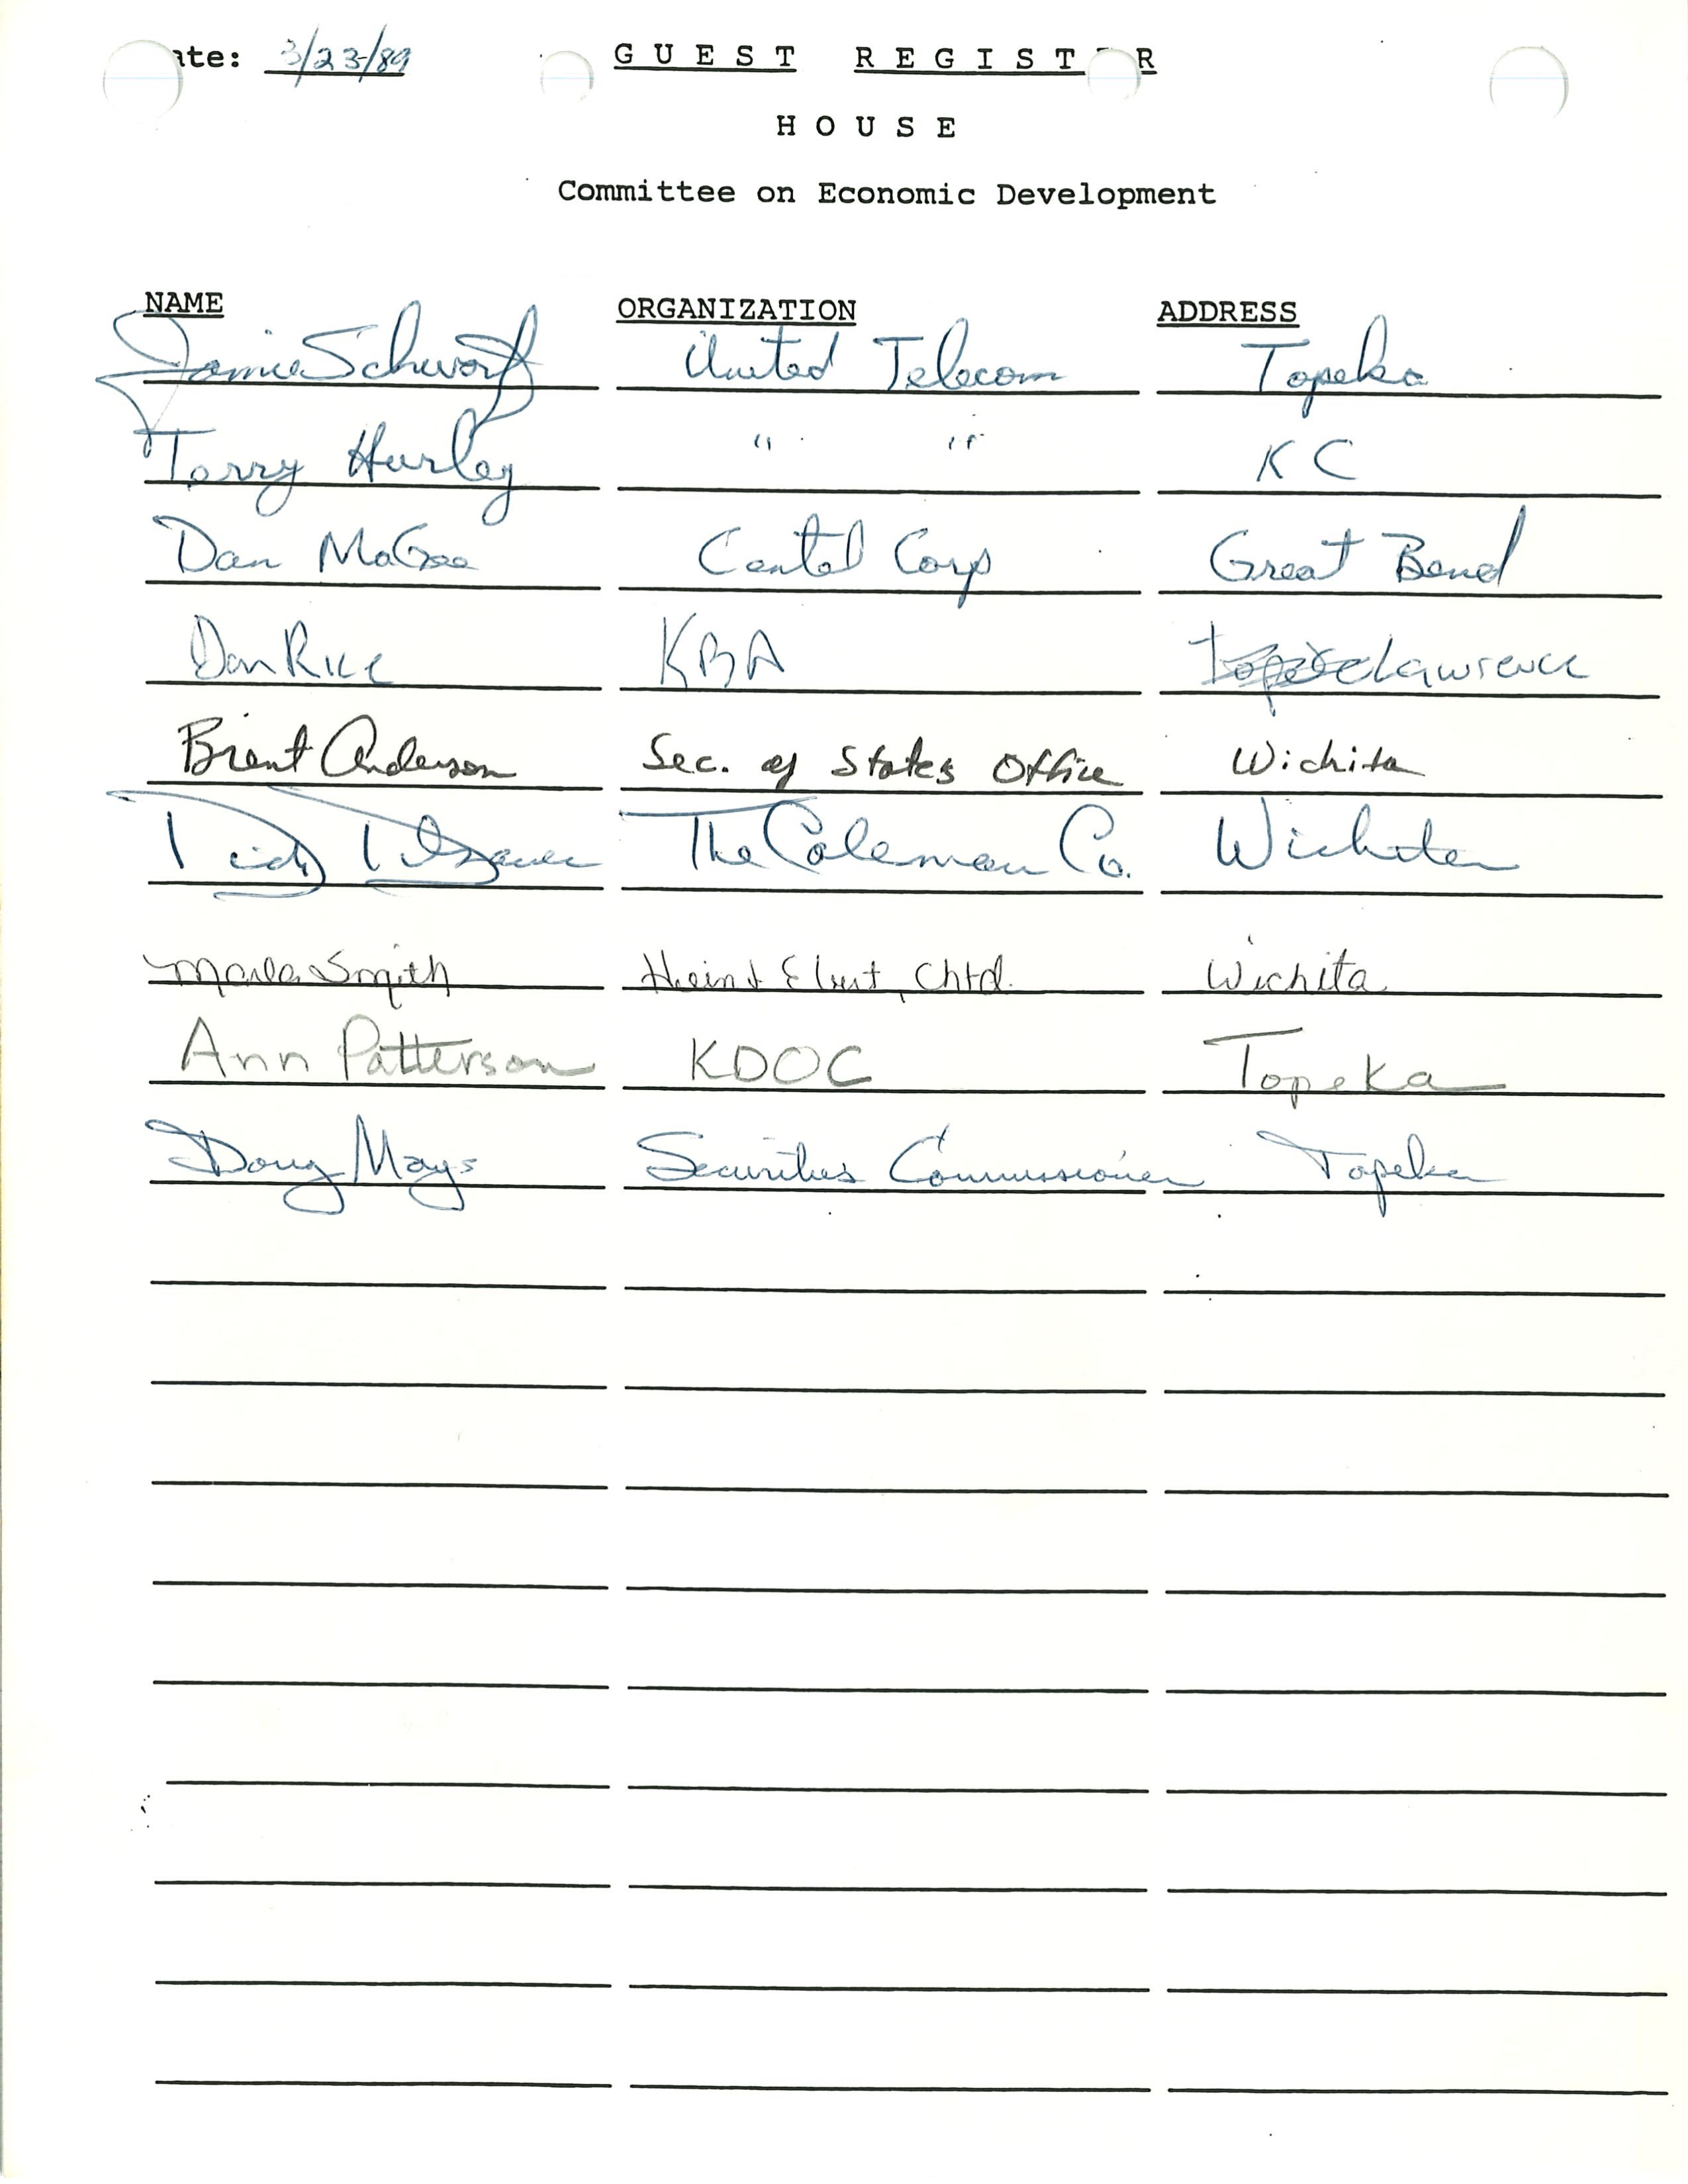 ate: 3/23/89 GUEST REGIST R
HOUSE
Committee on Economic Development
NAME ORGANIZATION ADDRESS
Jamie Schwartz United Telecom Topeka
Terry Hurley " " KC
Dan McGee Centel Corp Great Bend
Don Rice KBA Lawrence
Brent Anderson Sec. of States Office Wichita
Dick The Coleman Co. Wichita
Marla Smith Chtd. Wichita
Ann Patterson KDOC Topeka
Doug Mays Securities Commissioner Topeka